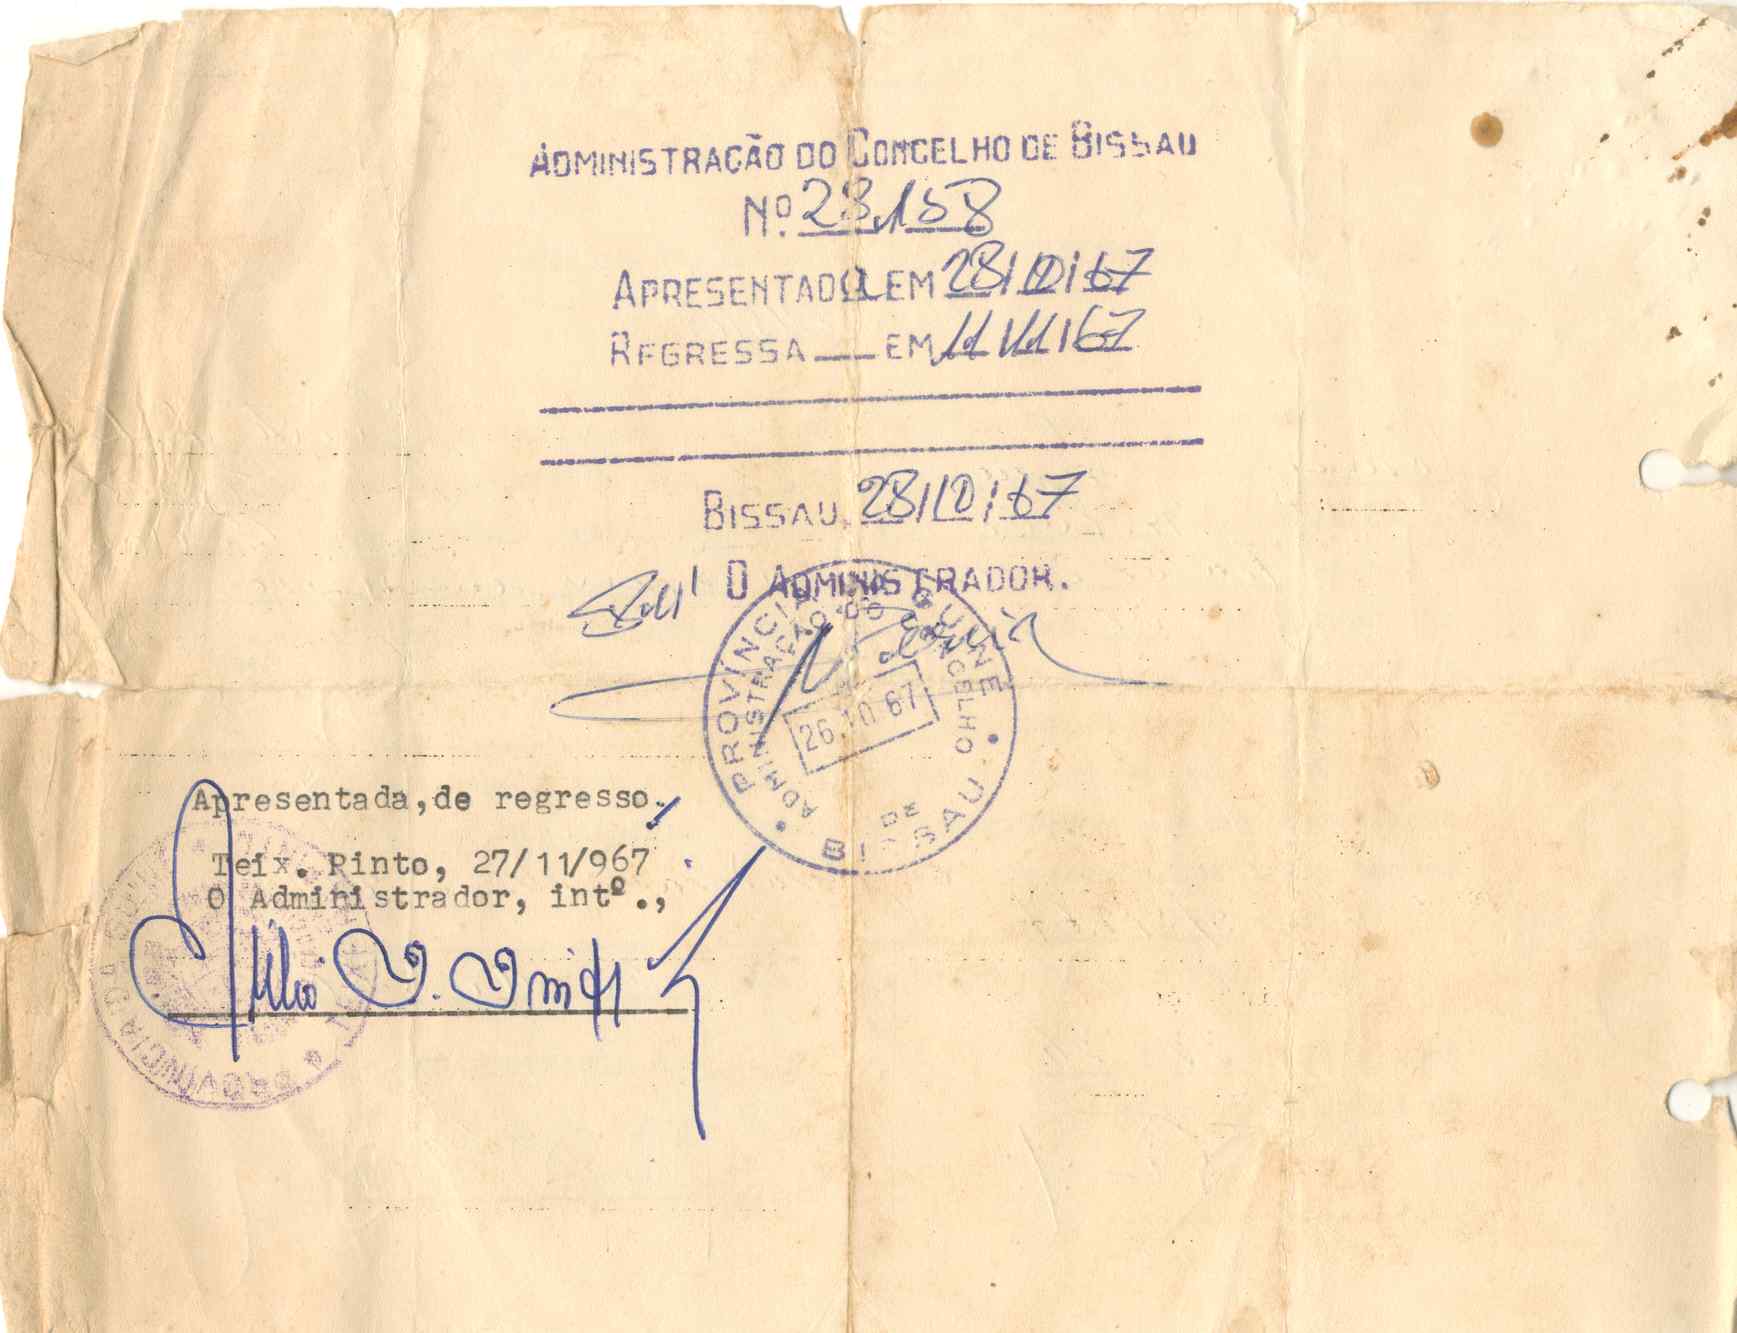 ADMINISTRAÇÃO DO CONCELHO DE BISSAU
Nº. 28.158
APRESENTADa EM 28/10/67
REGRESSA ___ EM 11/11/67
BISSAU, 28/10/67
O ADMINISTRADOR.
PROVÍNCIA DA GUINÉ
ADMINISTRAÇÃO DO CONCELHO
26.10.67
DE
BISSAU
Apresentada,de regresso.
Teix. Pinto, 27/11/967
O Administrador, intº.,
PROVINCIA D